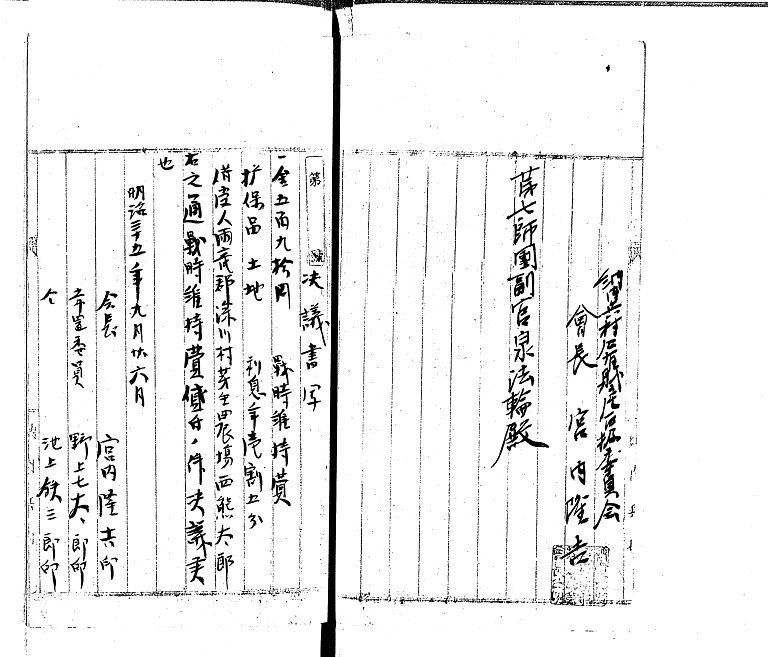 會長 宮内隆吉
第七師團副官泉法輪殿
第 號
決議書写
一金五百九拾円 戦時維持費
扩保品 土地 利息年壱割五分
借受人雨竜郡深川村芽生農場西熊太郎
右之通戦時維持費貸付ノ件決議実
也
明治三十五年九月廿六月
会長 宮内隆吉印
常置委員 野上七太郎印
仝 池上鉄三郎印